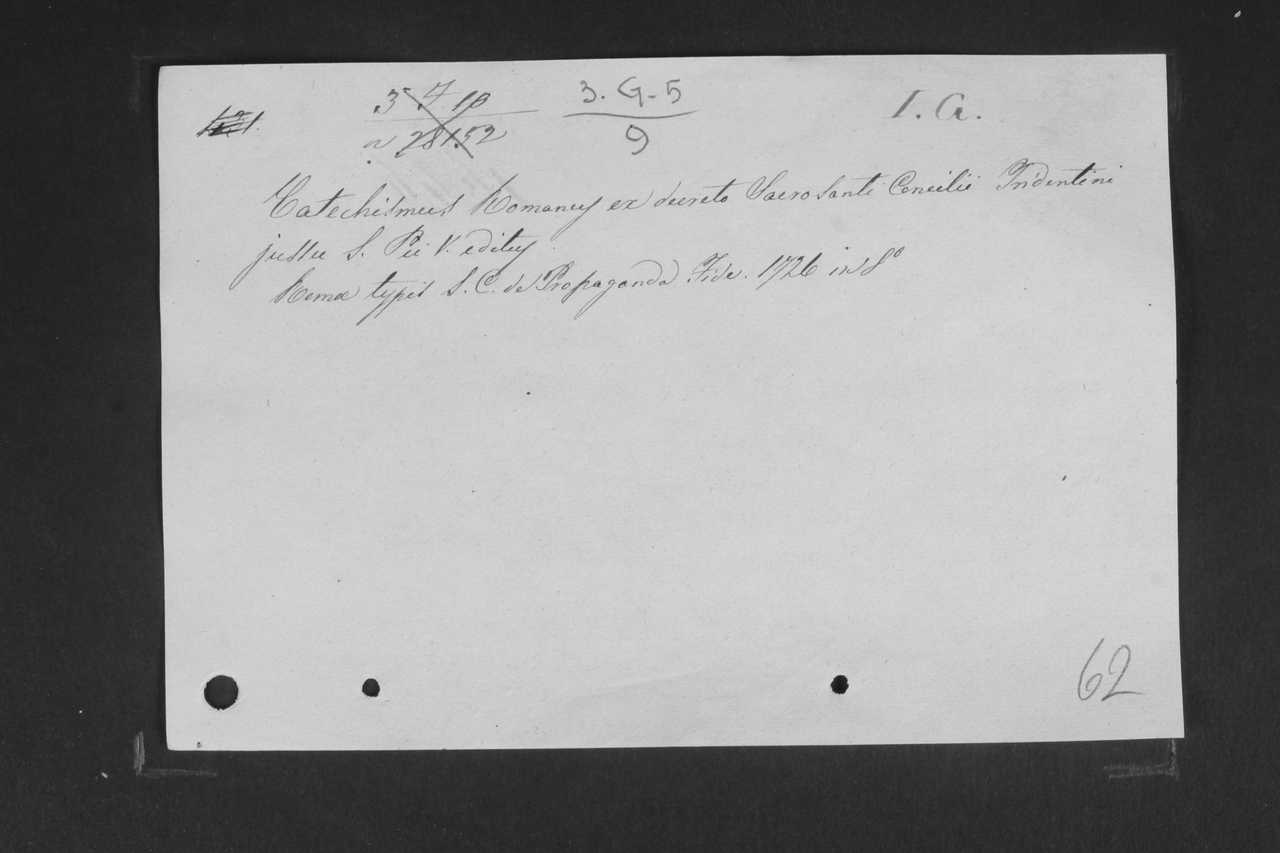 3. G-5
I. G.
9
Catechismus Romanus ex decreto Sacrosanti Concilii Tridentini
jussu S. Pii V. editus.
Romæ typis S. C. de Propaganda Fide. 1726 in 8º
62